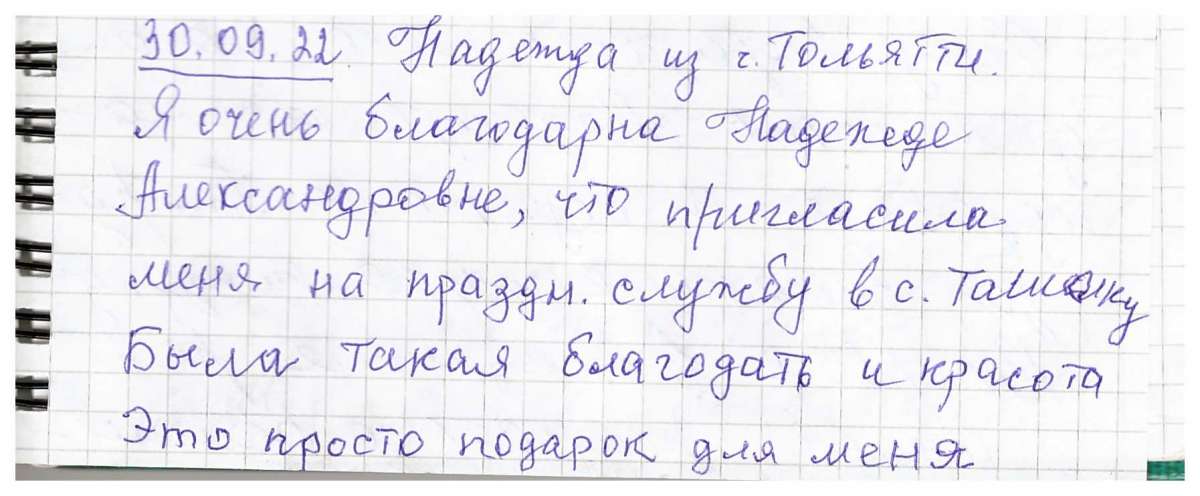 30.09.22. Надежда из г. Тольятти.
Я очень благодарна Надежде
Александровне, что пригласила
меня на праздн. службу в с. Ташолку
Была такая благодать и красота
Это просто подарок для меня